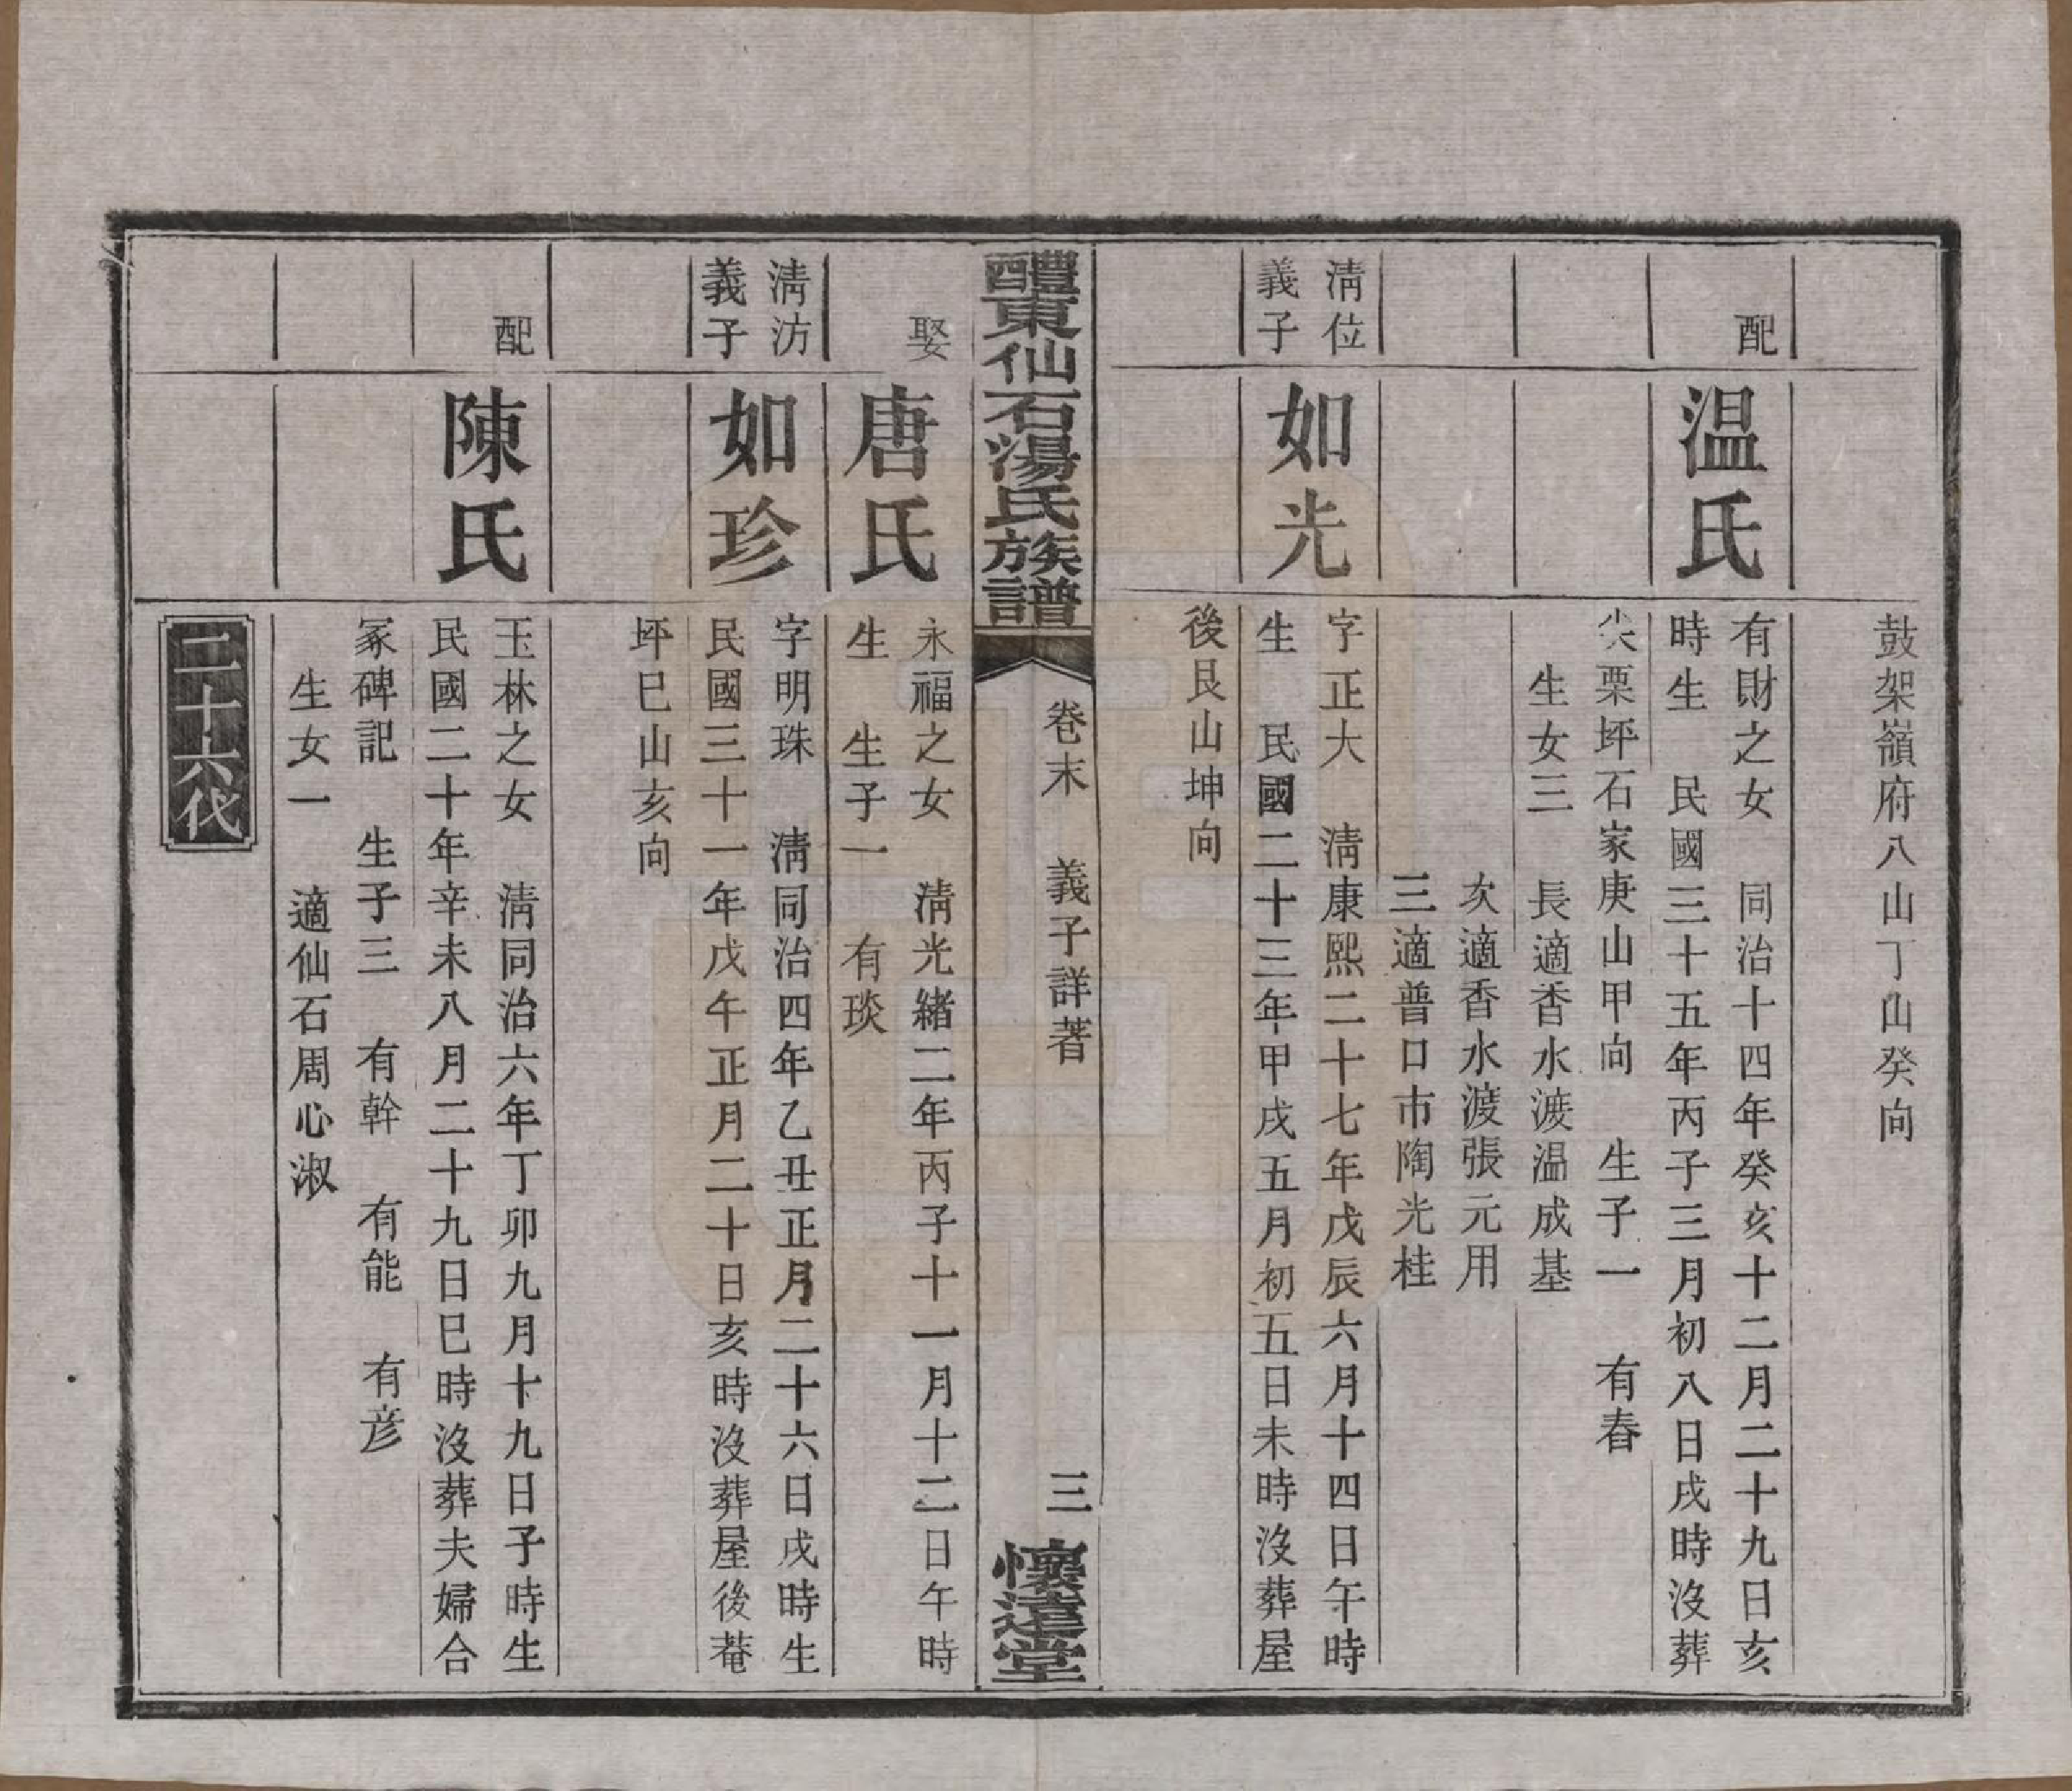 鼓架嶺府八山丁山癸向
配
温氏
有財之女　同治十四年癸亥十二月二十九日亥
時生　民國三十五年丙子三月初八日戌時沒葬
尖栗坪石家庚山甲向　生子一　有春
生女三　長適香水渡温成基
次適香水渡張元用
三適普口市陶光桂
清位
義子
如光
字正大　清康熙二十七年戊辰六月十四日午時
生　民國二十三年甲戌五月初五日未時沒葬屋
後艮山坤向
醴東仙石湯氏族譜
卷末　義子詳著
三
懷遠堂
娶
唐氏
永福之女　清光緒二年丙子十一月十二日午時
生　生子一　有琰
清汸
義子
如珍
字明珠　清同治四年乙丑正月二十六日戌時生
民國三十一年戊午正月二十日亥時沒葬屋後菴
坪巳山亥向
配
陳氏
玉林之女　清同治六年丁卯九月十九日子時生
民國二十年辛未八月二十九日巳時沒葬夫婦合
冢碑記　生子三　有幹　有能　有彦
生女一　適仙石周心淑
二十六代